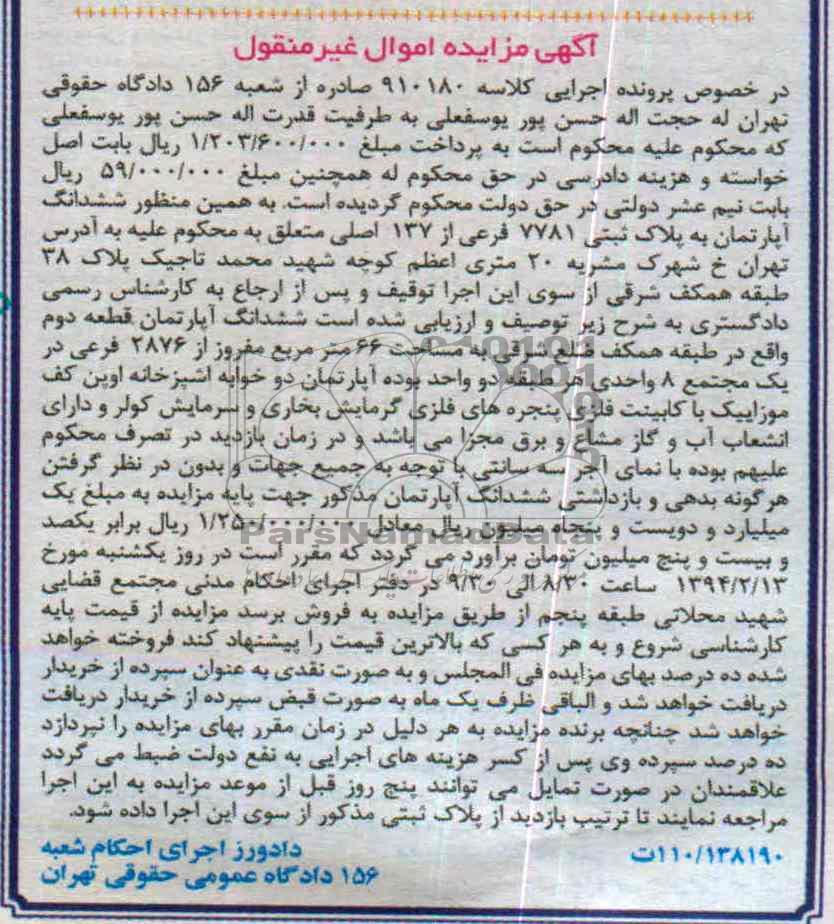 آگهی مزایده اموال غیرمنقول
در خصوص پرونده اجرایی کلاسه ۹۱۰۱۸۰ صادره از شعبه ۱۵۶ دادگاه حقوقی
تهران له حجت اله حسن پور یوسفعلی به طرفیت قدرت اله حسن پور یوسفعلی
که محکوم علیه محکوم است به پرداخت مبلغ ۱/۲۰۳/۶۰۰/۰۰۰ ریال بابت اصل
خواسته و هزینه دادرسی در حق محکوم له همچنین مبلغ ۵۹/۰۰۰/۰۰۰ ریال
بابت نیم عشر دولتی در حق دولت محکوم گردیده است. به همین منظور ششدانگ
آپارتمان به پلاک ثبتی ۷۷۸۱ فرعی از ۱۳۷ اصلی متعلق به محکوم علیه به آدرس
تهران خ شهرک مشریه ۲۰ متری اعظم کوچه شهید محمد تاجیک پلاک ۳۸
طبقه همکف شرقی از سوی این اجرا توقیف و پس از ارجاع به کارشناس رسمی
دادگستری به شرح زیر توصیف و ارزیابی شده است ششدانگ آپارتمان قطعه دوم
واقع در طبقه همکف ضلع شرقی به مساحت ۶۶ متر مربع مفروز از ۲۸۷۶ فرعی در
یک مجتمع ۸ واحدی هر طبقه دو واحد بوده آپارتمان دو خوابه اشپزخانه اوپن کف
موزاییک با کابینت فلزی پنجره های فلزی گرمایش بخاری و سرمایش کولر و دارای
انشعاب آب و گاز مشاع و برق مجزا می باشد و در زمان بازدید در تصرف محکوم
علیهم بوده با نمای آجر سه سانتی با توجه به جمیع جهات و بدون در نظر گرفتن
هرگونه بدهی و بازداشتی ششدانگ آپارتمان مذکور جهت پایه مزایده به مبلغ یک
میلیارد و دویست و پنجاه میلیون ریال معادل ۱/۲۵۰/۰۰۰/۰۰۰ ریال برابر یکصد
و بیست و پنج میلیون تومان برآورد می گردد که مقرر است در روز یکشنبه مورخ
۱۳۹۴/۲/۱۳ ساعت ۸/۳۰ الی ۹/۳۰ در دفتر اجرای احکام مدنی مجتمع قضایی
شهید محلاتی طبقه پنجم از طریق مزایده به فروش برسد مزایده از قیمت پایه
کارشناسی شروع و به هر کسی که بالاترین قیمت را پیشنهاد کند فروخته خواهد
شده ده درصد بهای مزایده فی المجلس و به صورت نقدی به عنوان سپرده از خریدار
دریافت خواهد شد و الباقی ظرف یک ماه به صورت قبض سپرده از خریدار دریافت
خواهد شد چنانچه برنده مزایده به هر دلیل در زمان مقرر بهای مزایده را نپردازد
ده درصد سپرده وی پس از کسر هزینه های اجرایی به نفع دولت ضبط می گردد
علاقمندان در صورت تمایل می توانند پنج روز قبل از موعد مزایده به این اجرا
مراجعه نمایند تا ترتیب بازدید از پلاک ثبتی مذکور از سوی این اجرا داده شود.
۱۱۰/۱۳۸۱۹۰ت
دادورز اجرای احکام شعبه
۱۵۶ دادگاه عمومی حقوقی تهران
ParsNamadData